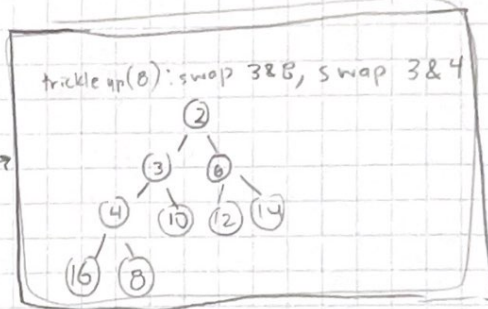 trickle up(8): swap 3&8, swap 3&4
2
3 6
4 10 12 14
16 8